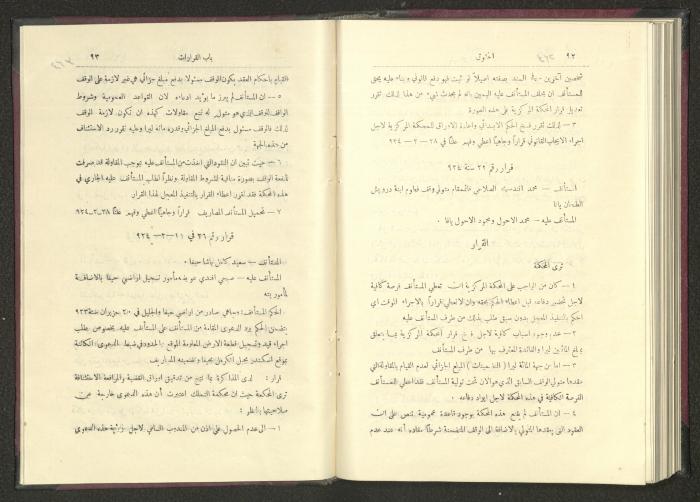 ٩٢
الحقوق
شخصين آخرين - بذا السند بصفته اصيلاً لو ثبت فهو دفع قانوني وبناء عليه يحق
للمستأنف ان يحلف المستأنف عليه اليمين بانه لم يحدث شيء من هذا لذلك تقرر
تعديل قرار المحكمة المركزية على هذه الصورة
٣ — لذلك تقرر فسخ الحكم الابتدائي واعادة الاوراق للمحكمة المركزية لاجل
اجراء الايجاب القانوني قراراً وجاهياً اعطي وفهم علنًا في ٢٨ — ٢ — ٩٢٤
قرار رقم ٢٢ سنة ٩٢٤
المستأنف — محمد افندي الصلاحي قائمقام متولي وقف فطوم ابنة درويش
الطحان يافا
المستأنف عليه — محمد الاحول ومحمود الاحول يافا
القرار
ترى المحكمة
١ — كان من الواجب على المحكمة المركزية ان تعطي المستأنف فرصة كافية
لاجل تحضير دفاعه قبل اعطاء الحكم بحقه وان لا تعطي قراراً بالاجراء الموقت اي
حكم بالتنفيذ المعجل بدون سبق طلب بذلك من طرف المستأنف عليه
٢ — عدم وجود اسباب كافية لاجل قرار المحكمة المركزية بما يتعلق
بمبلغ المائتين ليرا والفائدة المعترف بها من طرف المستأنف
٣ — اما من جهة المائة ليرا ( التأمينات ) المبلغ الجزائي لعدم القيام بالمقاولة التي
عقدها متولي الوقف السابق الذي هو الان تحت تولية المستأنف فقد اعطي للمستأنف
الفرصة الكافية في هذه المحكمة لاجل ايراد دفاعه
٤ — ان المستأنف لم يقنع هذه المحكمة بوجود قاعدة عمومية تنص على ان
العقود التي يعقدها المتولي بالاضافة الى الوقف المتضمنة شرطاً مفاده أنه عند عدم
باب القرارات
٩٣
القيام باحكام العقد يكون الوقف مسئولا بدفع مبلغ جزائي هي غير لازمة على الوقف
٥ — ان المستأنف لم يبرز ما يؤيد ادعاءه لان القواعد العمومية وشروط
الواقف لوقف الذي هو متولى له تمنع مقاولات كهذه ان تكون لازمة الوقف
لذلك فالوقف مسئول بدفع المبلغ الجزائي وقدره مائة ليرا وعليه تقرر رد الاستئناف
من هذه الجهة
٦ — حيث تبين ان النقود التي اخذت من المستأنف عليه بموجب المقاولة قد صرفت
لمنفعة الوقف بصورة منافية لشروط المقاولة ونظراً لطلب المستأنف عليه الجاري في
هذه المحكمة فقد تقرر اعطاء القرار بالتنفيذ المعجل لهذا القرار
٧ — تحميل المستأنف المصاريف قراراً وجاهيًا اعطي وفهم علنًا ٢٨—٢—٩٢٤
قرار رقم ٢٦ في ١١—٢—٩٢٤
المستأنف — سعيد كامل باشا حيفا
المستأنف عليه — صبحي افندي عويضه مأمور تسجيل اراضي حيفا بالاضافة
لمأموريته
الحكم المستأنف : وجاهي صادر من اراضي حيفا والجليل في ٢٠ حزيران سنة ٩٢٣
يتضمن الحكم برد الدعوى المقامة من المستأنف على المستأنف عليه بخصوص طلب
اجراء قيد وتسجيل قطعة الارض المعلومة الموقع والحدود في ضبط الدعوى الكائنة
بموقع اسكندر بجبل الكرمل بحيفا وتضمينه المصاريف
قرار : لدى المذاكرة بما نتج من تدقيق اوراق القضية والمرافعة الاستئنافية
ترى المحكمة حيث ان محكمة التملك اعتبرت أن هذه الدعوى خارجة عن
صلاحيتها بالنظر :
١ — الى عدم الحصول على اذن من المندوب السامي لاجل رؤية هذه الدعوى